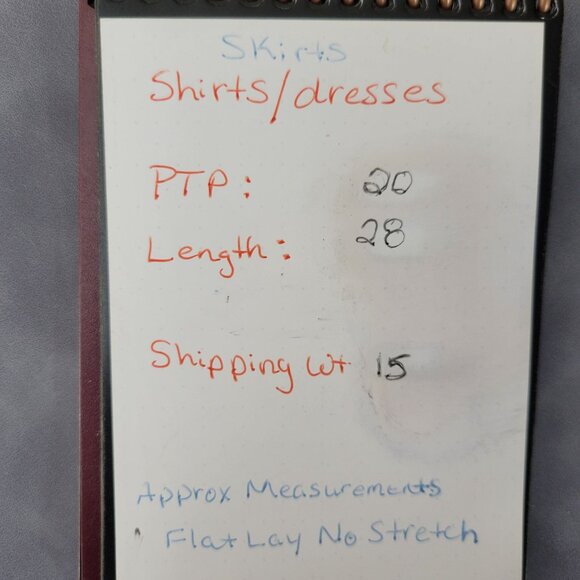 Skirts
Shirts/dresses
PTP: 20
Length: 28
Shipping Wt 15
Approx Measurements
Flat Lay No Stretch